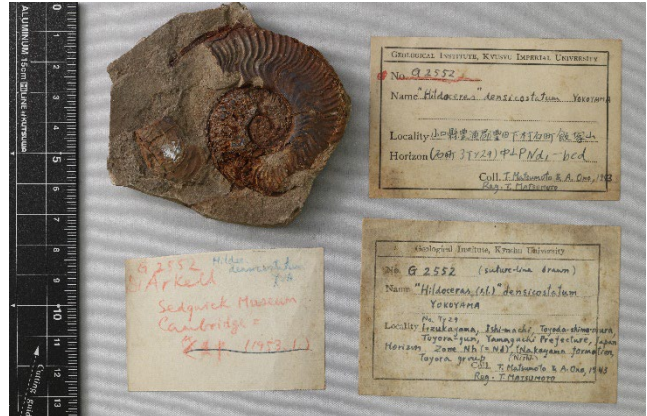 ALUMINUM 15cm
LINE→KUTSUUR
Cutting guide
0
1
2
3
4
5
6
7
8
9
10
11
12
13
GEOLOGICAL INSTITUTE, KYUSYU IMPERIAL UNIVERSITY
No. G 2552
Name "Hildoceras" densicostatum YOKOYAMA
Locality 山口縣豊浦郡豊田下村石町
Horizon (石町 Ty29) Nd, -bcd
Coll. T. Matsumoto & A. Ono, 1943
Reg. T. MATSUMOTO
G 2552
Arkell
Sedgwick Museum
Cambridge
(1953. 1.)
Geological Institute, Kyusyu University
No. G 2552 (suture-line drawn)
Name "Hildoceras (s.l.)" densicostatum
YOKOYAMA
No. Ty29
Locality Ishi-machi, Toyoda-shimo-mura,
Toyora-gun, Yamaguchi Prefecture, Japan
Horizon, Zone Nh (= Nd), Nakayama formation,
Toyora group
Coll. T. Matsumoto & A. Ono, 1943
Reg. T. MATSUMOTO